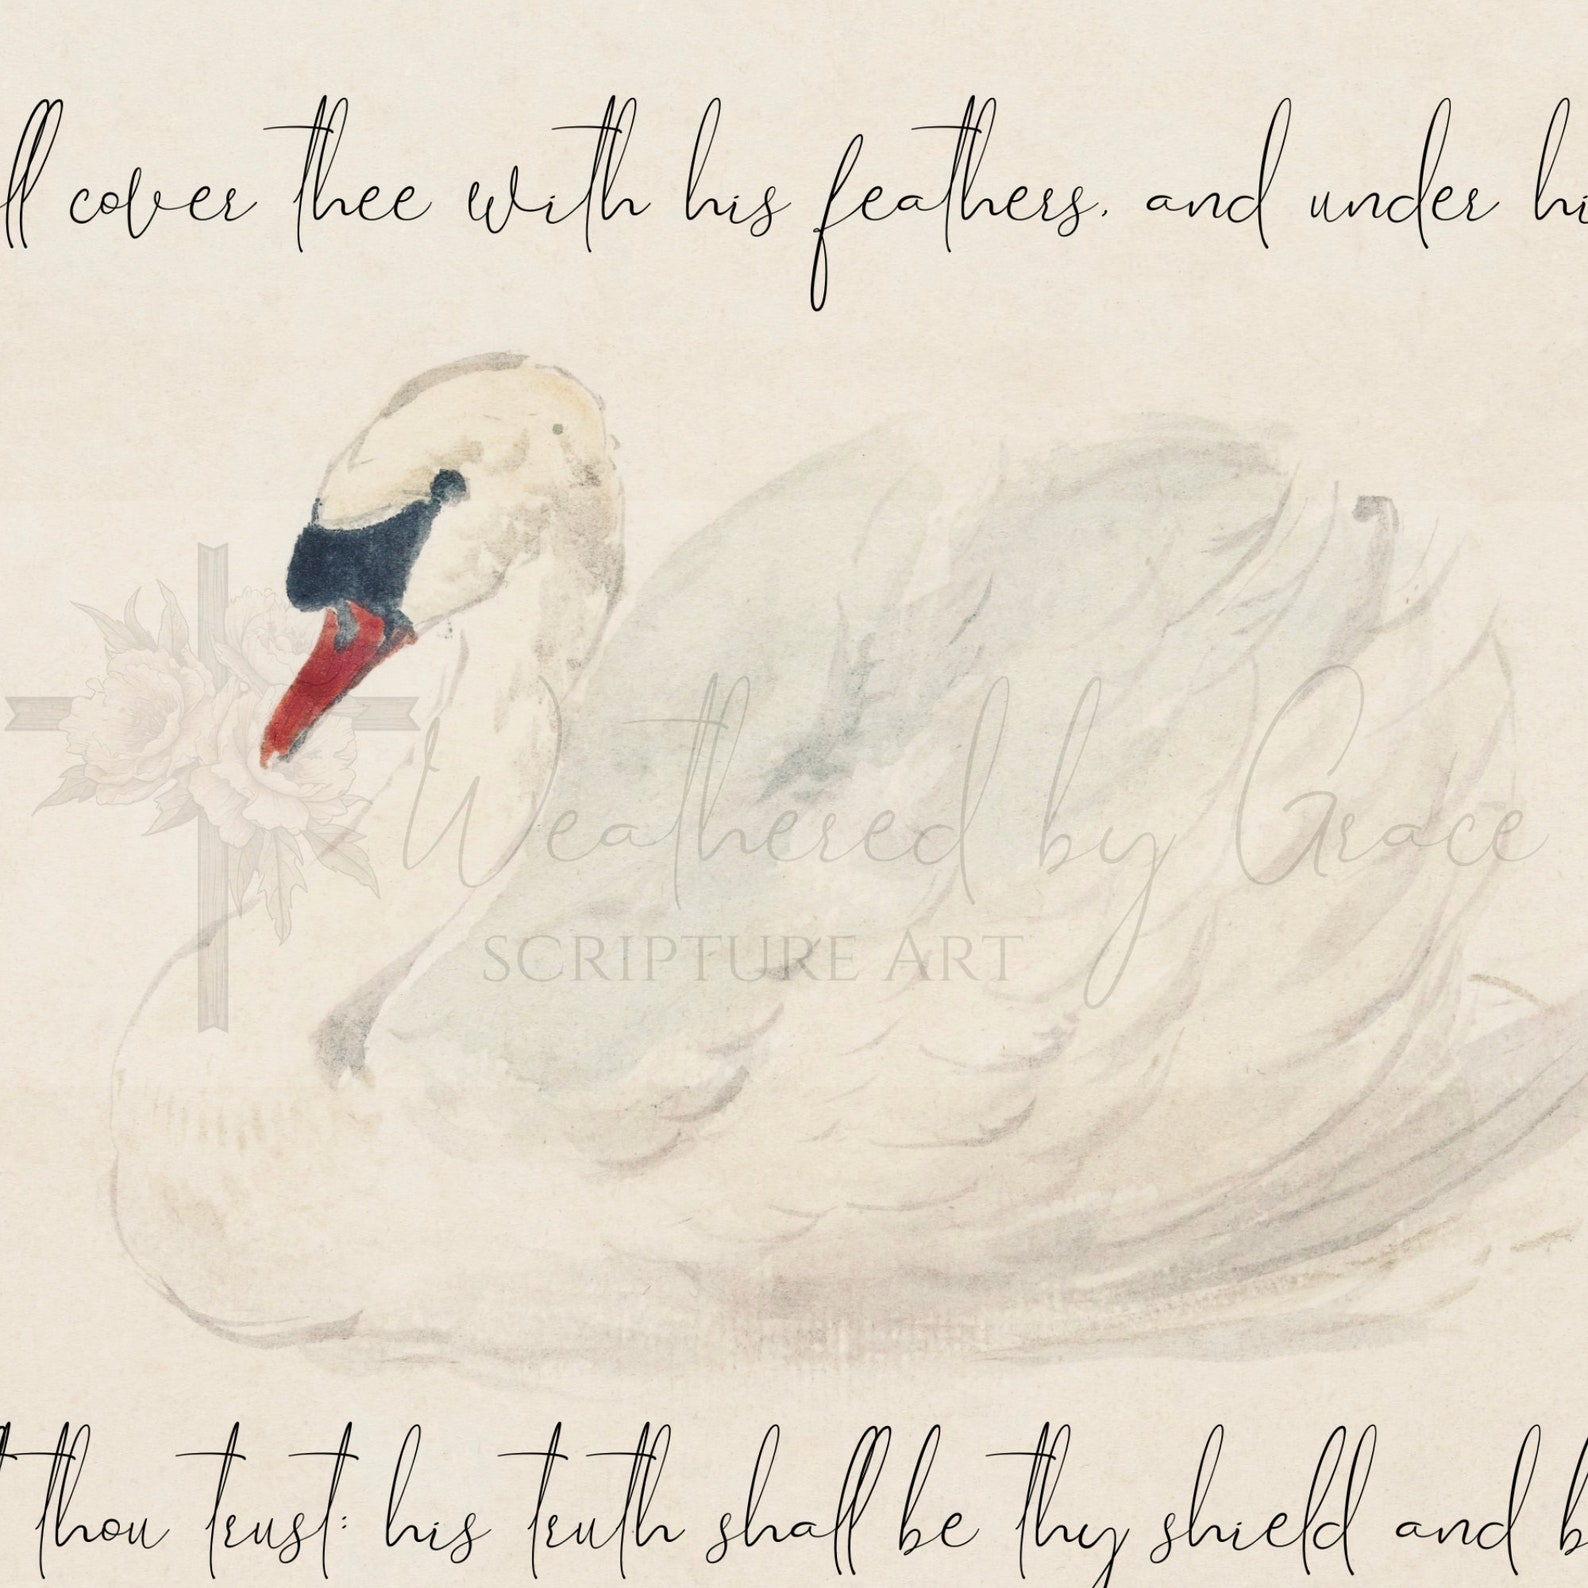 ll cover thee with his feathers, and under hi
Weathered by Grace
SCRIPTURE ART
t thou trust: his truth shall be thy shield and b